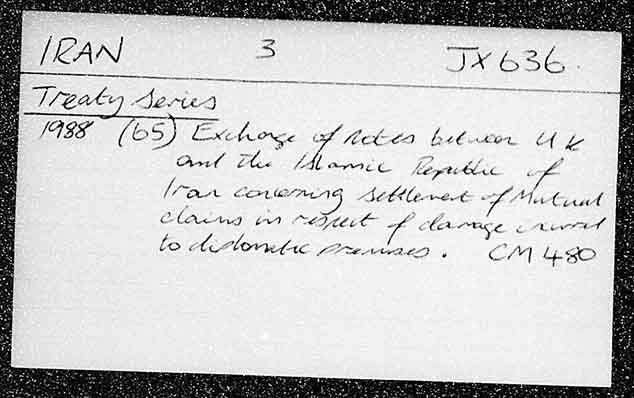 IRAN 3 JX636.
Treaty Series
1988 (65) Exchange of Notes between UK
and the Islamic Republic of
Iran concerning settlement of Mutual
claims in respect of damage
to diplomatic premises. CM 480